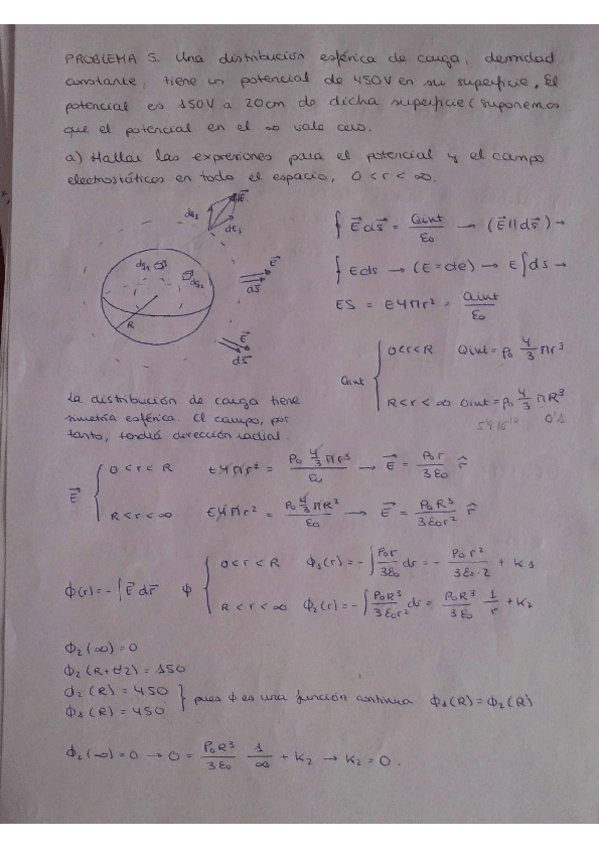 PROBLEMA 5. Una distribución esférica de carga, densidad
constante, tiene un potencial de 450V en su superficie. El
potencial es 150V a 20cm de dicha superficie (suponemos
que el potencial en el ∞ vale cero.
a) Hallar las expresiones para el potencial y el campo
electrostáticos en todo el espacio, 0 < r < ∞.
dq₂ E⃗
dE₁
dq₁ dq₂
E⃗
dS⃗
R
E⃗
dS⃗
∮ E⃗ds⃗ = Qint/ε₀ → (E⃗ || ds⃗) →
∮ Eds → (E = cte) → E∫ds →
ES = E4πr² = Qint/ε₀
Qint { 0<r<R Qint = ρ₀ 4/3 πr³
R<r<∞ Qint = ρ₀ 4/3 πR³
0'1
La distribución de carga tiene
simetría esférica. El campo, por
tanto, tendrá dirección radial.
E⃗ { 0<r<R E4πr² = ρ₀ 4/3 πr³/ε₀ → E⃗ = ρ₀r/3ε₀ r̂
R<r<∞ E4πr² = ρ₀ 4/3 πR³/ε₀ → E⃗ = ρ₀R³/3ε₀r² r̂
ϕ(r) = -∫E⃗dr⃗ ϕ { 0<r<R ϕ₁(r) = -∫ρ₀r/3ε₀ dr = - ρ₀r²/3ε₀·2 + K₁
R<r<∞ ϕ₂(r) = -∫ρ₀R³/3ε₀r² dr = ρ₀R³/3ε₀ 1/r + K₂
ϕ₂(∞) = 0
ϕ₂(R+d2) = 150
ϕ₂(R) = 450
ϕ₁(R) = 450 } pues ϕ es una función continua ϕ₁(R) = ϕ₂(R)
ϕ₂(∞) = 0 → 0 = ρ₀R³/3ε₀ 1/∞ + K₂ → K₂ = 0.